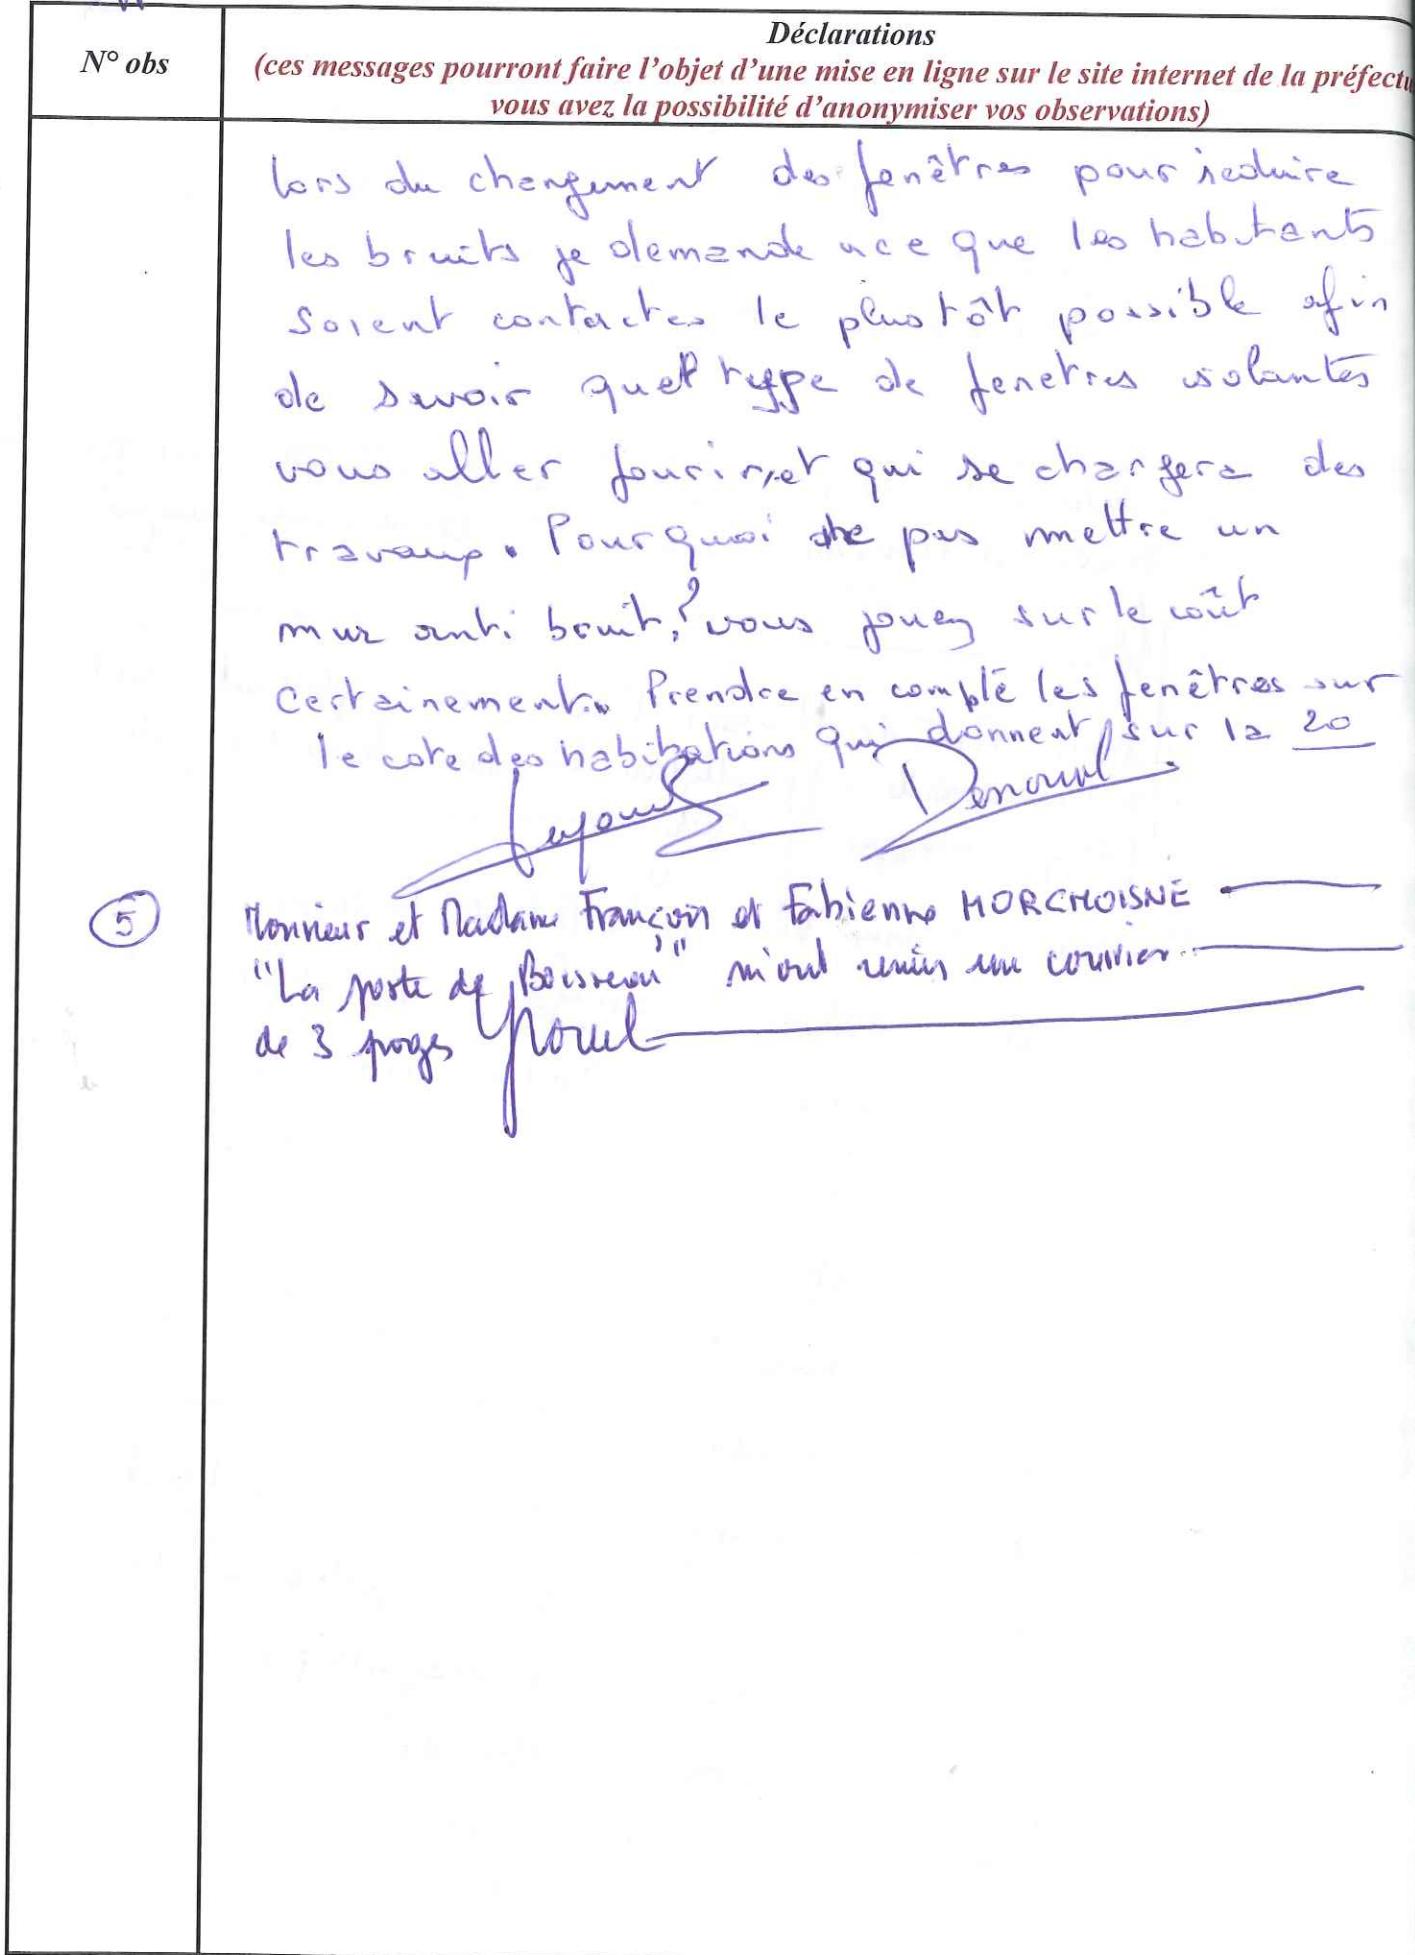 Déclarations
N° obs
(ces messages pourront faire l'objet d'une mise en ligne sur le site internet de la préfectu
vous avez la possibilité d'anonymiser vos observations)
lors du changement des fenêtres pour réduire
les bruits je demande a ce que les habitants
soient contactes le plus tôt possible afin
de savoir quel type de fenetres isolantes
vous aller fourir, et qui se chargera des
travaux. Pourquoi ne pas mettre un
mur anti bruit,? vous jouez sur le coût
certainement. Prendre en compte les fenêtres sur
le cote des habitations qui donnent sur la 20
5
Monsieur et Madame François et Fabienne MORCHOISNE
"La porte de" m'ont remis un courrier
de 3 pages